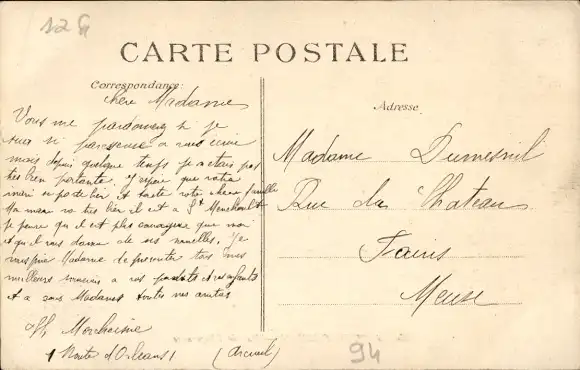 128
CARTE POSTALE
Correspondance
Adresse
Chere Madame
Vous me pardonnez si je
suis si paresseuse a vous ecrire
mais depuis quelque temps je n'etais pas
tres bien portante, j'espere que votre
mari se porte bien et toute votre chere famille
Mon mari va tres bien il est a Ste Menehould
je pense qu'il est plus courageux que moi
et qu'il vous donne de ses nouvelles. Je
vous prie Madame de presenter tous mes
meilleurs souvenirs a vos parents et vos enfants
et a vous Madame toutes mes amities
Morhaisne
1 Route d'Orleans 1 (Arcueil)
Madame Dumesnil
Rue du Chateau
Fains
Meuse
94